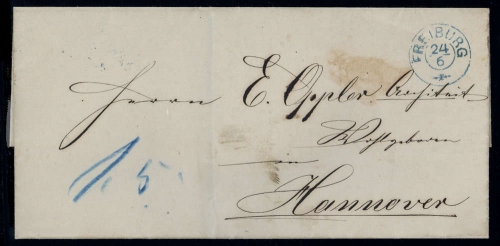 FREIBURG
24
6
Herrn E. Oppler Architect
Wohlgeboren
in
Hannover
15